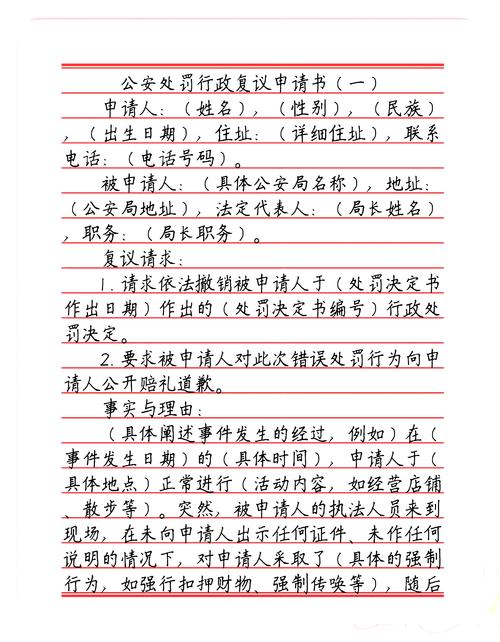 公安处罚行政复议申请书（一）
申请人：（姓名），（性别），（民族）
，（出生日期），住址：（详细住址），联系
电话：（电话号码）。
被申请人：（具体公安局名称），地址：
（公安局地址），法定代表人：（局长姓名）
，职务：（局长职务）。
复议请求：
1. 请求依法撤销被申请人于（处罚决定书
作出日期）作出的（处罚决定书编号）行政处
罚决定。
2. 要求被申请人对此次错误处罚行为向申
请人公开赔礼道歉。
事实与理由：
（具体阐述事件发生的经过，例如）在（
事件发生日期）的（具体时间），申请人于（
具体地点）正常进行（活动内容，如经营店铺
、散步等）。突然，被申请人的执法人员来到
现场，在未向申请人出示任何证件、未作任何
说明的情况下，对申请人采取了（具体的强制
行为，如强行扣押财物、强制传唤等），随后